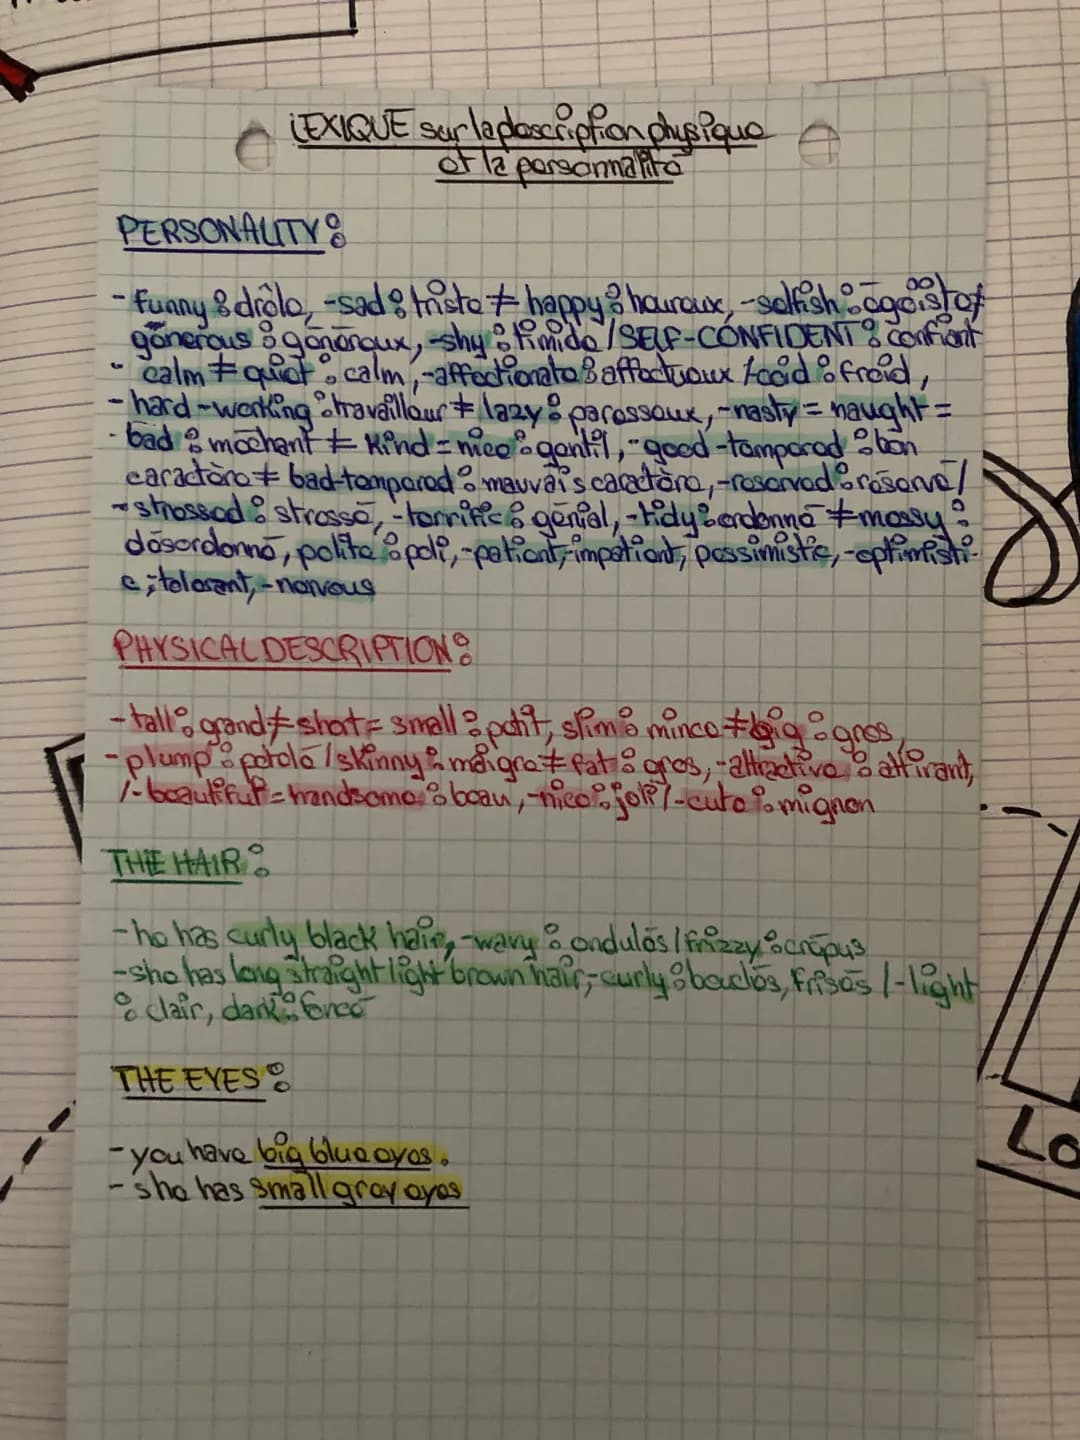 LEXIQUE sur la description physique
et la personnalité
PERSONALITY :
- funny : drôle, -sad : triste ≠ happy : heureux, -selfish : égoïste ≠
génerous : généreux, -shy : timide / SELF-CONFIDENT : confiant
- calm ≠ quiet : calm, -affectionate : affectueux / cold : froid,
- hard-working : travailleur ≠ lazy : paresseux, -nasty = naught =
- bad : méchant ≠ Kind = nice : gentil, -good-tempered : bon
caractère ≠ bad-tempered : mauvais caractère, -reserved : réservé /
- stressed : stressé, -terrific : génial, -tidy : ordonné ≠ messy :
désordonné, polite : poli, -patient, -impatient, pessimistic, -optimisti-
c, -tolerant, -nervous
PHYSICAL DESCRIPTION :
- tall : grand ≠ short = small : petit, slim : mince ≠ big : gros,
- plump : potelé / skinny : maigre ≠ fat : gros, -attractive : attirant,
/- beautiful = handsome : beau, -nice : joli /-cute : mignon
THE HAIR :
- he has curly black hair, -wavy : ondulés / frizzy : crépus
- she has long straight light brown hair, -curly : bouclés, frisés /-light
: clair, dark : foncé
THE EYES :
- you have big blue eyes.
- she has small grey eyes
Lo